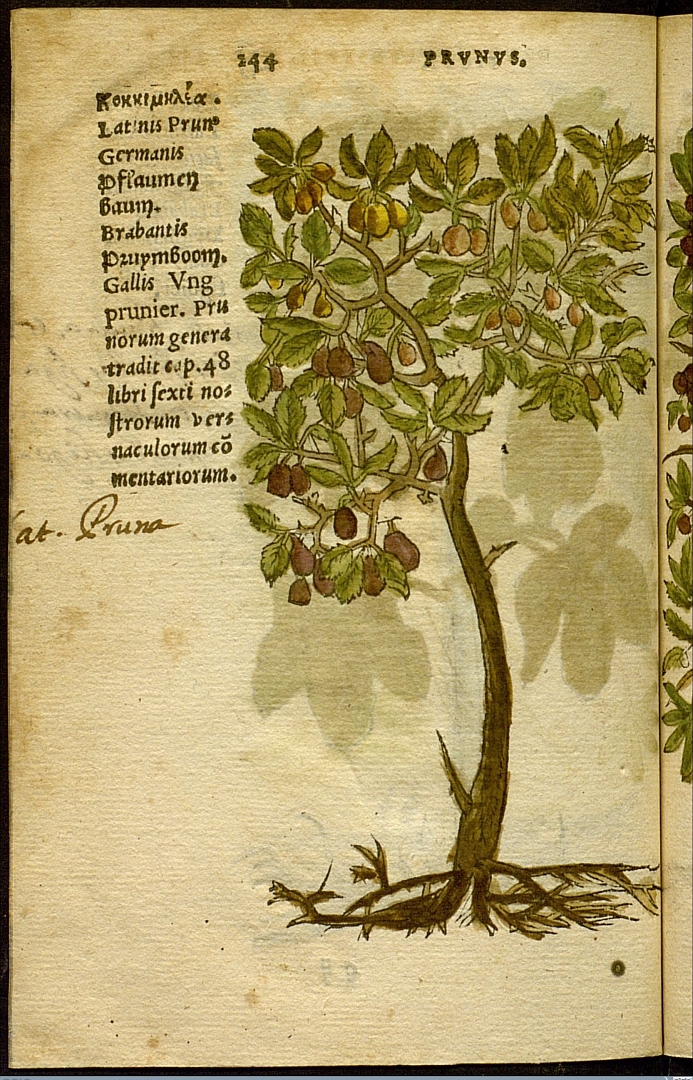 244 PRVNVS.
Κοκκιμηλέα.
Latinis Prunꝰ
Germanis
Pflaumen
Baum.
Brabantis
Pruymboom.
Gallis Vng
prunier. Pru
norum genera
tradit cap. 48
libri sexti no⸗
strorum ver⸗
naculorum cō
mentariorum.
at. Pruna